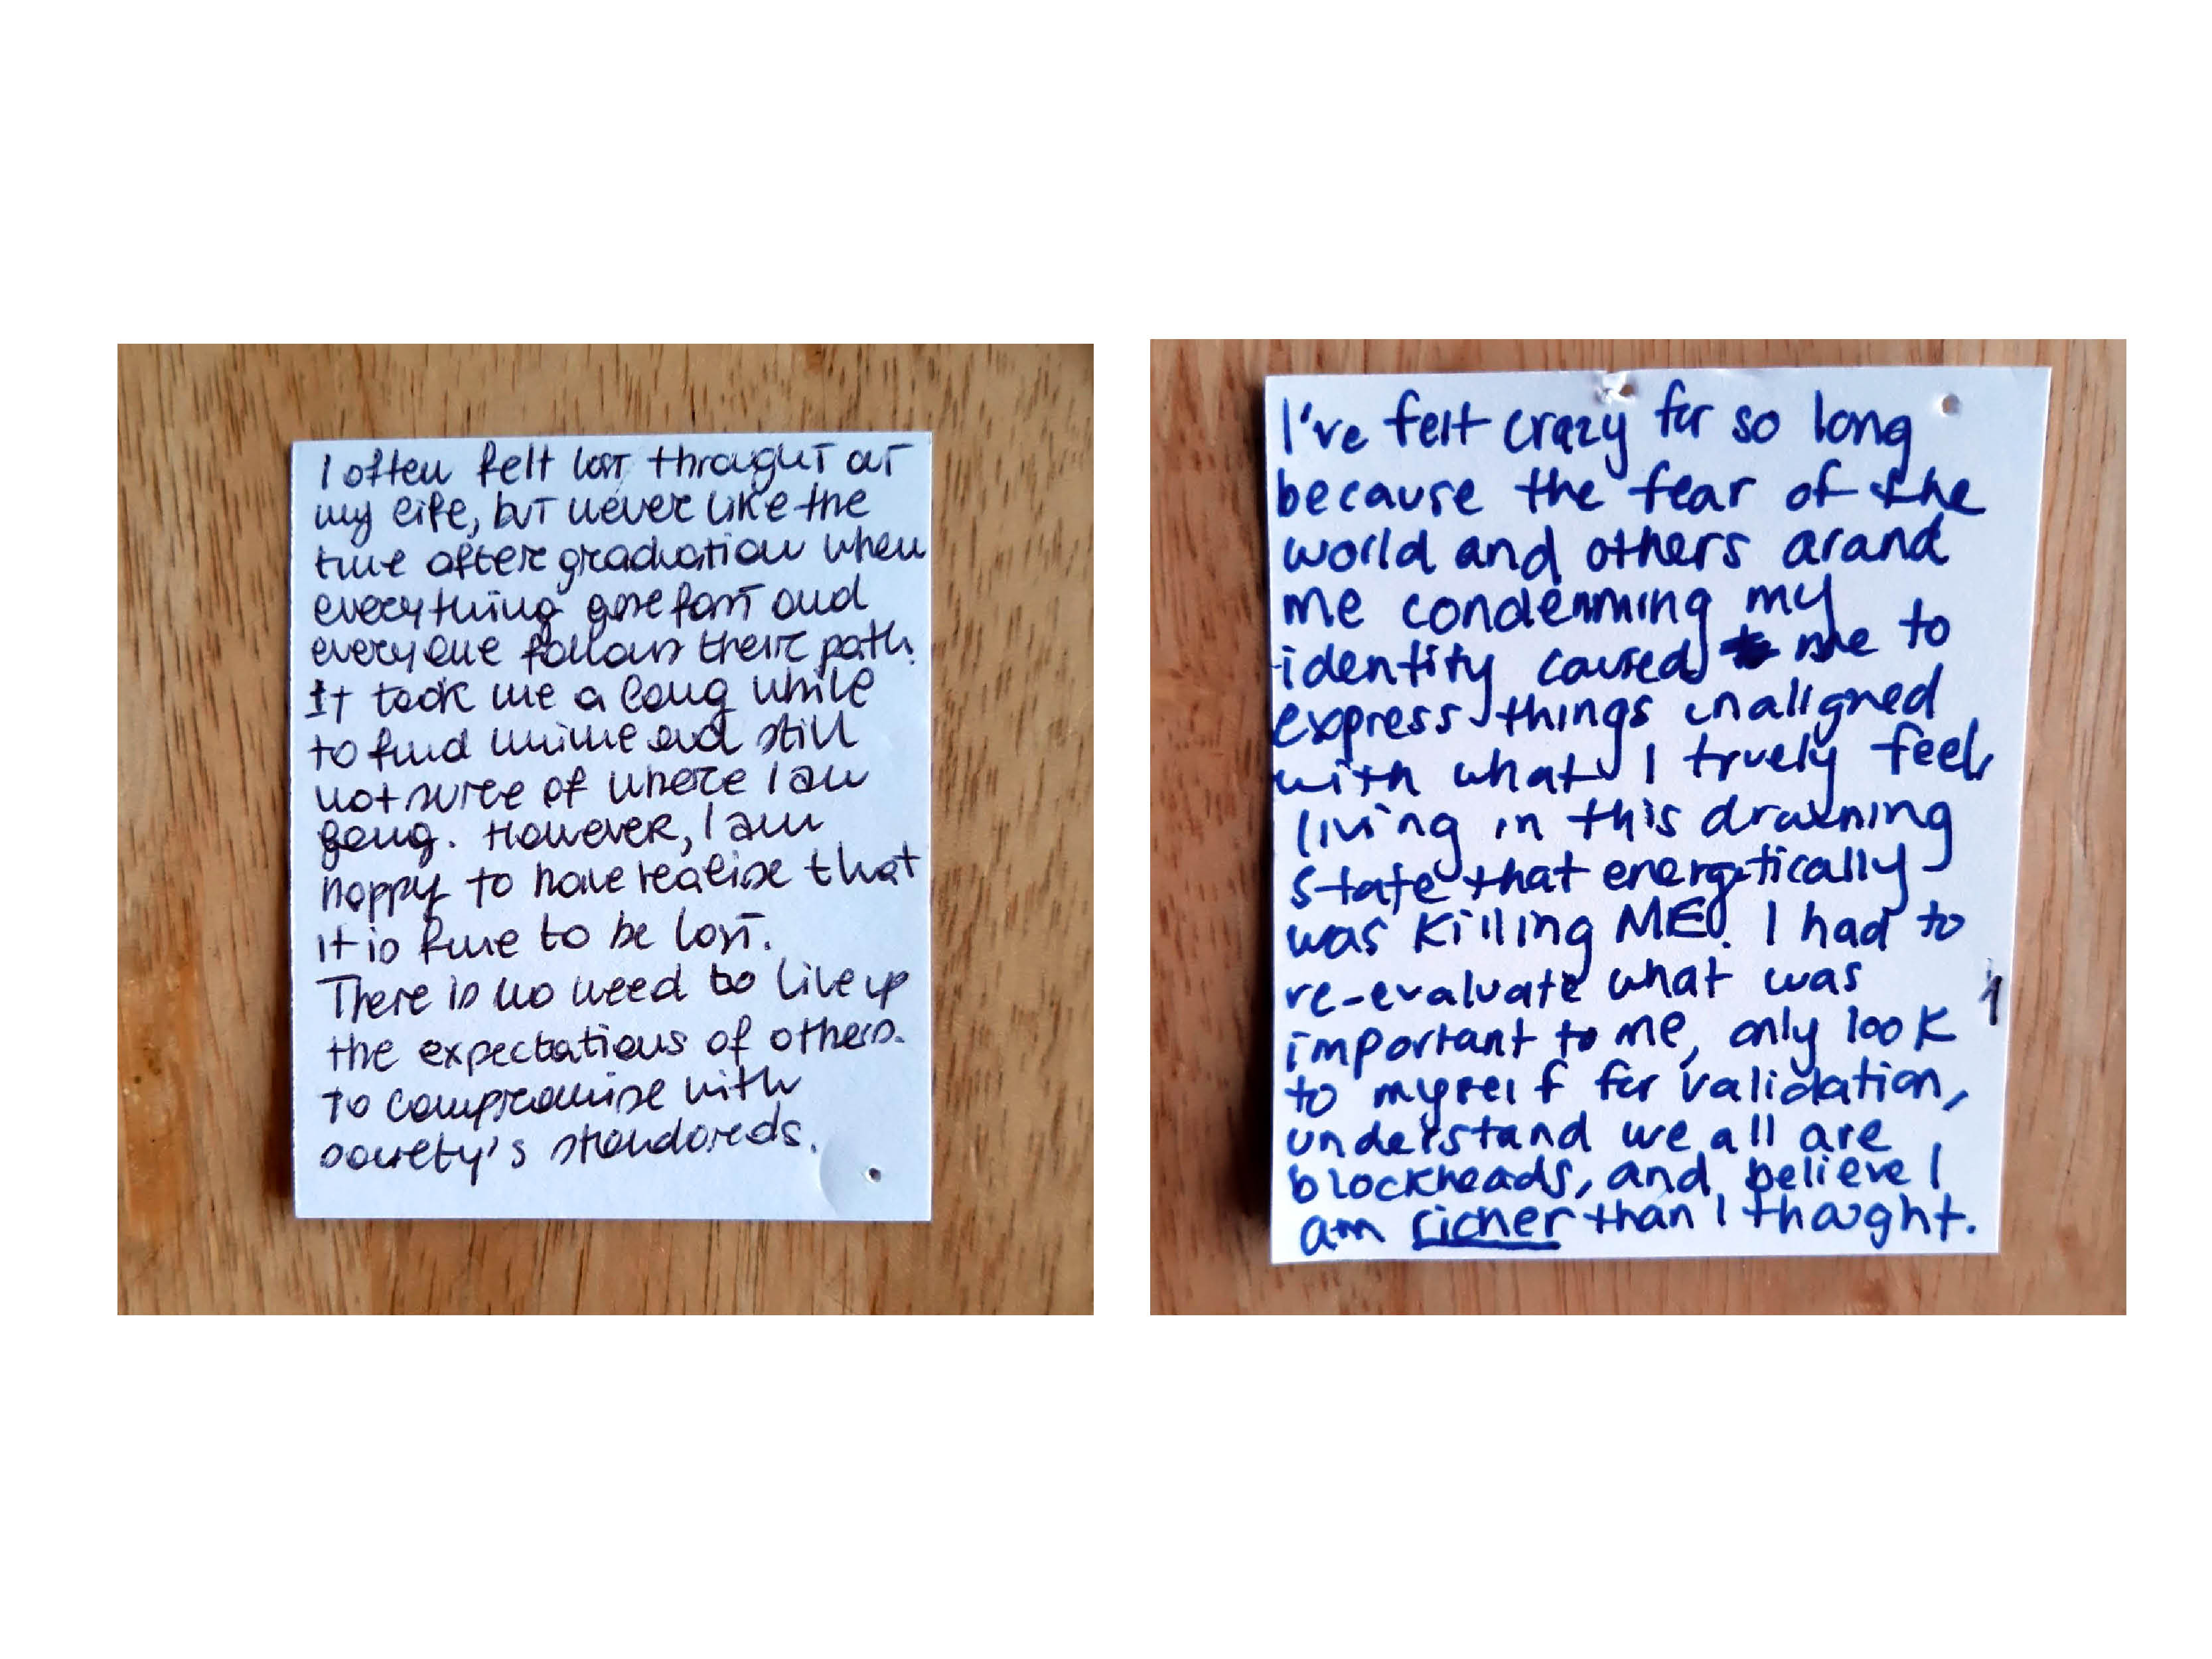 I often felt lost throught out
my life, but never like the
time after graduation when
everything gose fast and
everyone follows their path.
It took me a long while
to find mine and still
not sure of where I am
going. However, I am
happy to have realise that
it is fine to be lost.
There is no need to live up
the expectations of others.
To compromise with
society's standards.
I've felt crazy for so long
because the fear of the
world and others around
me condemming my
identity caused me to
express things unaligned
with what I truely feel,
living in this draining
state that energetically
was killing ME. I had to
re-evaluate what was
important to me, only look
to myself for validation,
understand we all are
blockheads, and believe I
am richer than I thought.
1